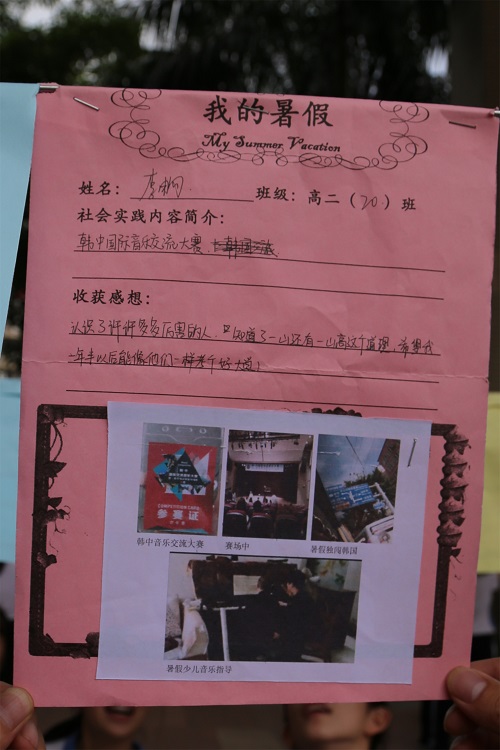 我的暑假
My Summer Vacation
姓名：李
班级：高二（20）班
社会实践内容简介：
韩中国际音乐交流大赛、
收获感想：
认识了许许多多厉害的人，知道了一山还有一山高这个道理，希望我
一年半以后能像他们一样考个好大学！
参赛证
韩中音乐交流大赛 赛场中 暑假独闯韩国
暑假少儿音乐指导